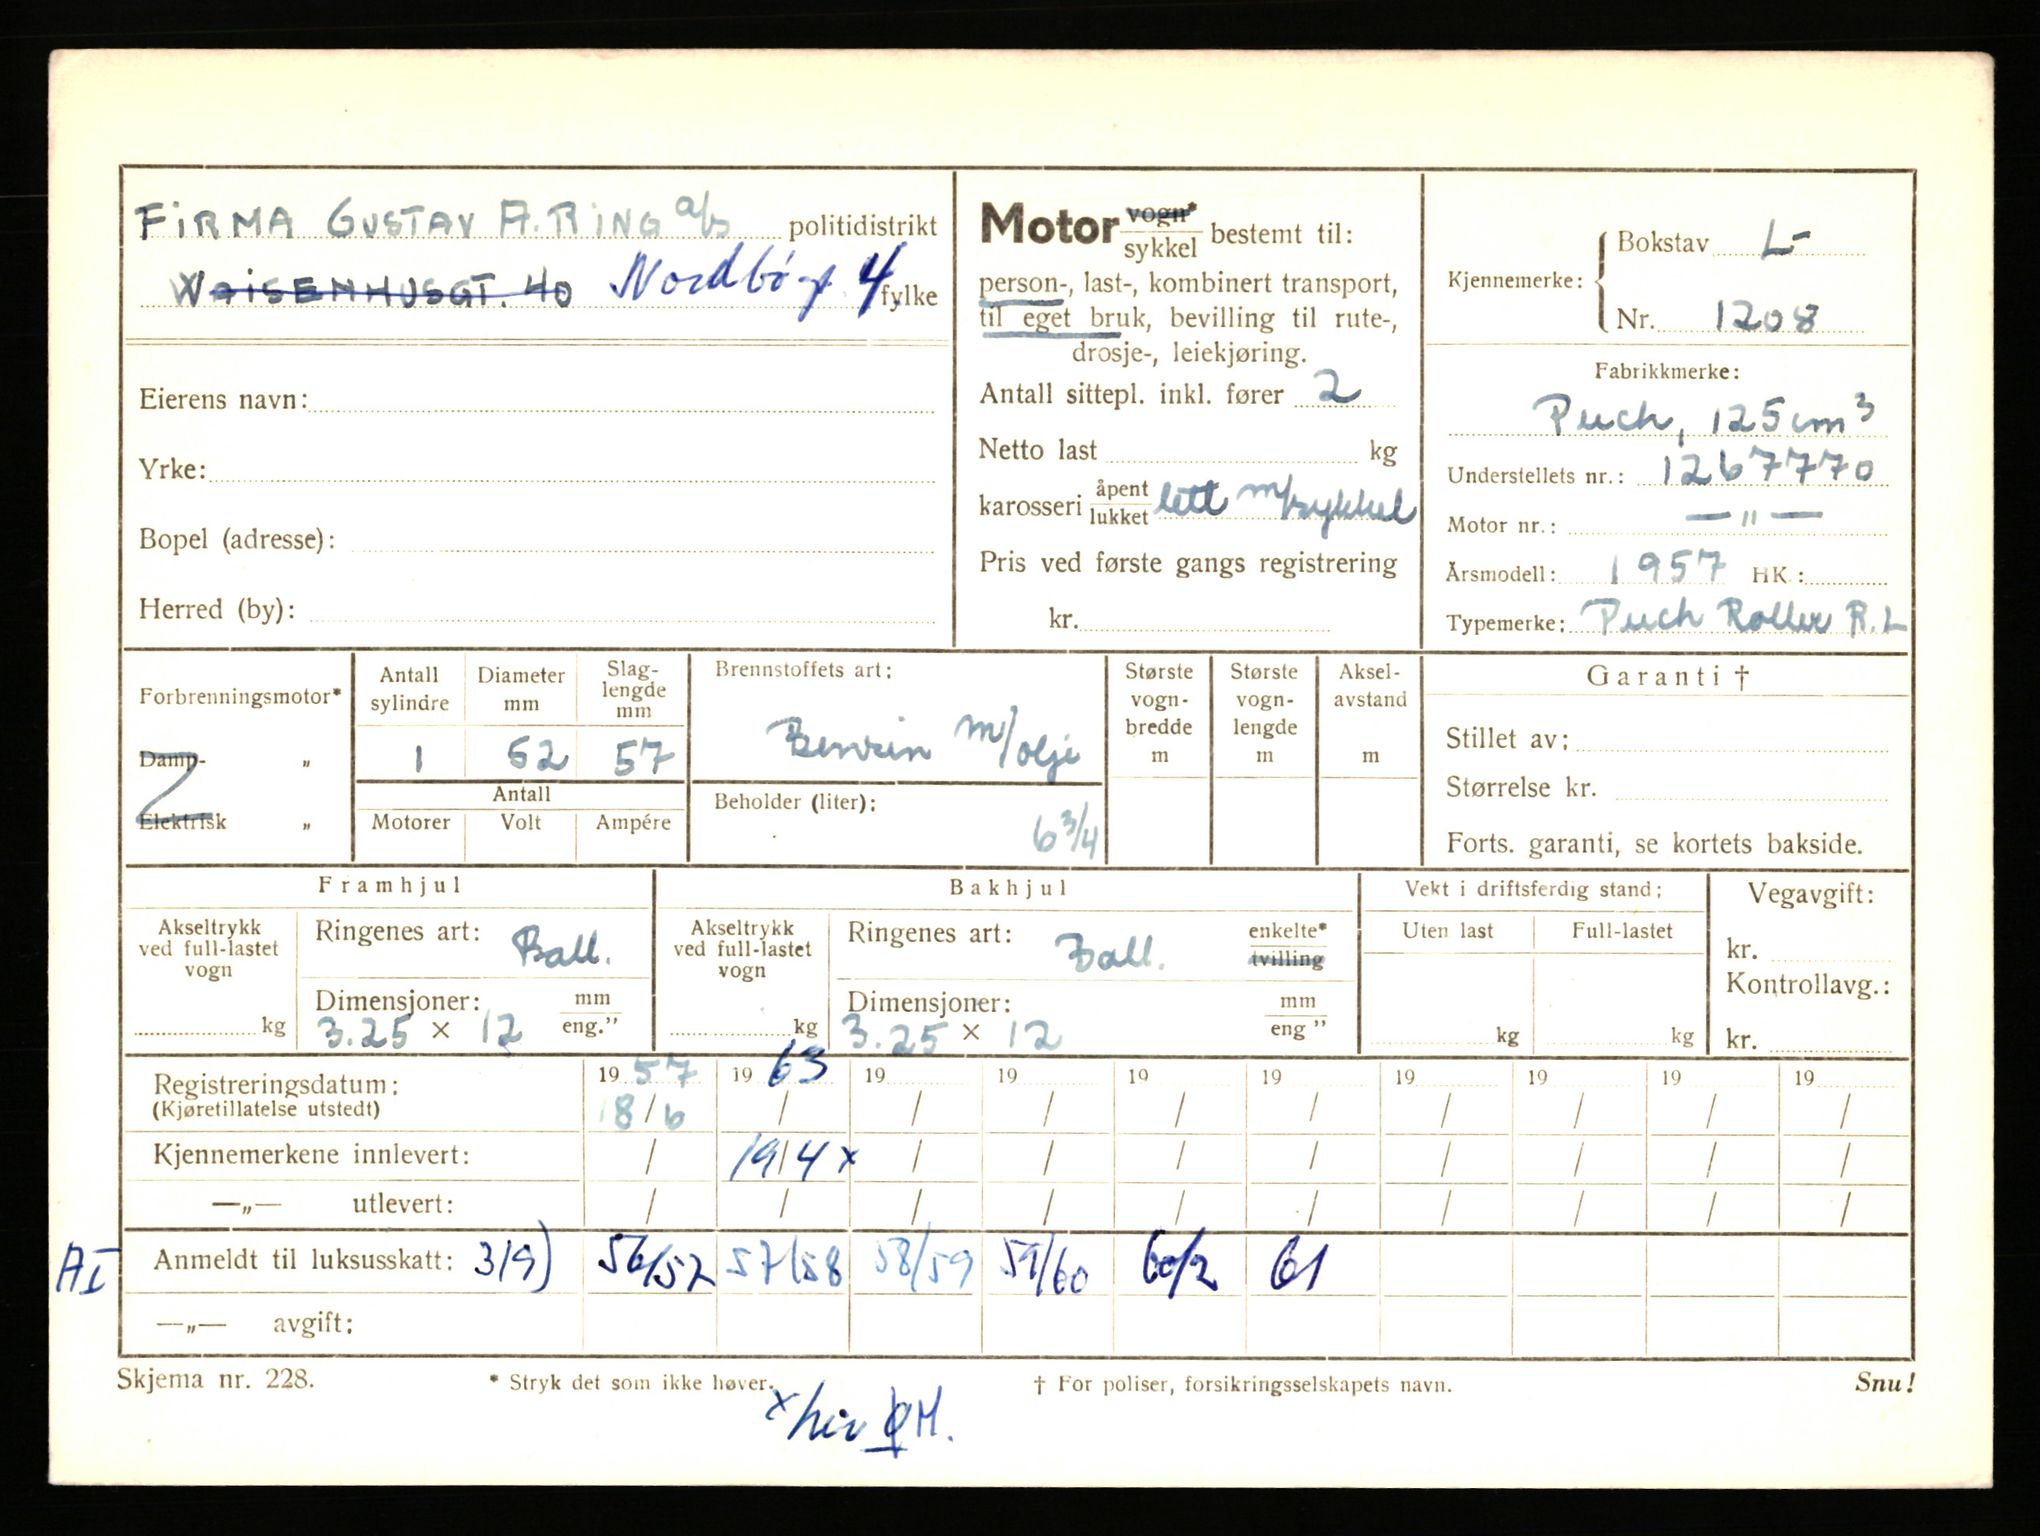 FIRMA GUSTAV A. RING a/s politidistrikt
WAISENHUSGT. 40 Nordbøgt. 4 fylke
Eierens navn:
Yrke:
Bopel (adresse):
Herred (by):
Motor vogn* sykkel bestemt til:
person-, last-, kombinert transport,
til eget bruk, bevilling til rute-,
drosje-, leiekjøring.
Antall sittepl. inkl. fører 2
Netto last kg
karosseri åpent lukket lett m/sykkel
Pris ved første gangs registrering
kr.
Kjennemerke: Bokstav L-
Nr. 1208
Fabrikkmerke:
Puch, 125 cm³
Understellets nr.: 1267770
Motor nr.: — " —
Årsmodell: 1957 HK.:
Typemerke: Puch Roller R.L
Forbrenningsmotor*
Damp- „
Elektrisk „
Antall sylindre
Diameter mm
Slag-lengde mm
1 52 57
Antall
Motorer Volt Ampére
Brennstoffets art:
Benzin m/olje
Beholder (liter):
6 3/4
Største vogn-bredde m
Største vogn-lengde m
Aksel-avstand m
Garanti †
Stillet av:
Størrelse kr.
Forts. garanti, se kortets bakside.
Framhjul
Akseltrykk ved full-lastet vogn
kg
Ringenes art: Ball.
Dimensjoner: mm
3.25 × 12 eng.”
Bakhjul
Akseltrykk ved full-lastet vogn
kg
Ringenes art: Ball. enkelte* tvilling
Dimensjoner: mm
3.25 × 12 eng ”
Vekt i driftsferdig stand:
Uten last Full-lastet
kg kg
Vegavgift:
kr.
Kontrollavg.:
kr.
Registreringsdatum: 19 57 19 63 19 19 19 19 19 19 19 19
(Kjøretillatelse utstedt) 18/6 / / / / / / / / /
Kjennemerkene innlevert: / 19/4 x / / / / / / / /
—„— utlevert: / / / / / / / / / /
AI Anmeldt til luksusskatt: 3/9) 56/57 57/58 58/59 59/60 60/2 61
—„— avgift:
Skjema nr. 228. * Stryk det som ikke høver. † For poliser, forsikringsselskapets navn. Snu!
x